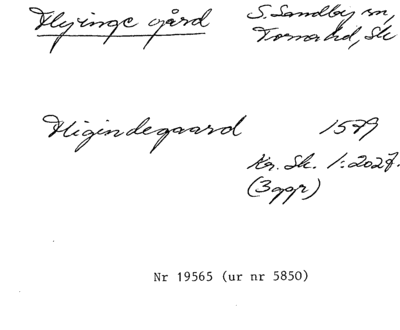 Flyinge gård S. Sandby sn,
Torna hd, Sk
Fligindegaard 1579
Kr. Sk. 1:202f.
(3 ggr)
Nr 19565 (ur nr 5850)